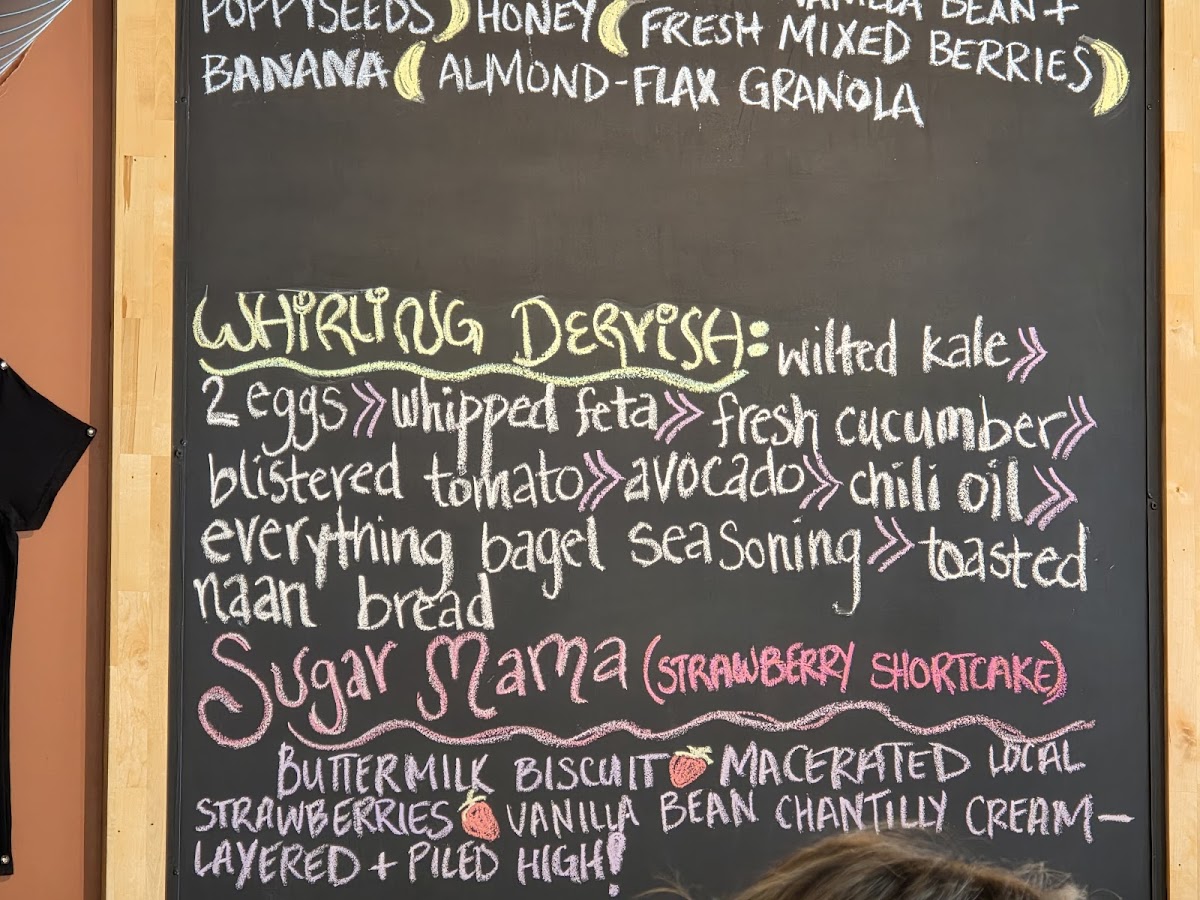 POPPYSEEDS HONEY VANILLA BEAN +
BANANA FRESH MIXED BERRIES
ALMOND-FLAX GRANOLA
WHIRLING DERVISH: wilted kale »
2 eggs » whipped feta » fresh cucumber »
blistered tomato » avocado » chili oil »
everything bagel seasoning » toasted
naan bread
Sugar Mama (STRAWBERRY SHORTCAKE)
BUTTERMILK BISCUIT MACERATED LOCAL
STRAWBERRIES VANILLA BEAN CHANTILLY CREAM—
LAYERED + PILED HIGH!